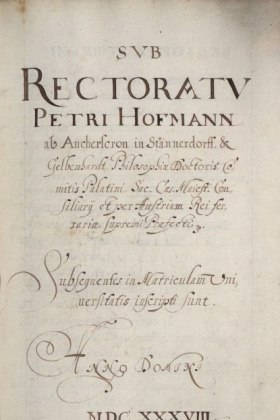 SVB
RECTORATV
PETRI HOFMANN
ab Ancherseron in Stännerdorff &
Gelbenhardt Philosophiæ Doctoris Co
mitis Palatini Sac. Cæs. Maiest. Con
siliarij et per Austriam Rei fer
rariæ supremi Præfecti
Subsequentes in Matriculam Uni
uersitatis inscripti sunt.
ANNO DOMINI
MDC XXXVIII